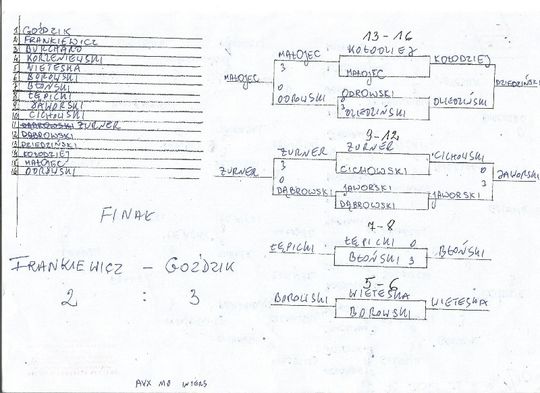 1 GOŹDZIK
2 FRANKIEWICZ
3 BURCHARD
4 KORZENIEWSKI
5 WIETESKA
6 BOROWSKI
7 BŁOŃSKI
8 ŁĘPICKI
9 JAWORSKI
10 CICHOWSKI
11 DĄBROWSKI ŻURNER
12 DĄBROWSKI
13 DZIEDZIŃSKI
14 KOŁODZIEJ
15 MAŁOJEC
16 ODROWSKI
FINAŁ
FRANKIEWICZ - GOŹDZIK
2 : 3
13-16
MAŁOJEC KOŁODZIEJ KOŁODZIEJ
3 MAŁOJEC
MAŁOJEC DZIEDZIŃSKI
0 ODROWSKI
ODROWSKI 3 DZIEDZIŃSKI DZIEDZIŃSKI
9-12
ŻURNER ŻURNER CICHOWSKI
3 CICHOWSKI 0
ŻURNER 0 3 JAWORSKI
DĄBROWSKI JAWORSKI JAWORSKI
DĄBROWSKI 0
7-8
ŁĘPICKI ŁĘPICKI 0
BŁOŃSKI 3 BŁOŃSKI
5-6
BOROWSKI WIETESKA WIETESKA
BOROWSKI